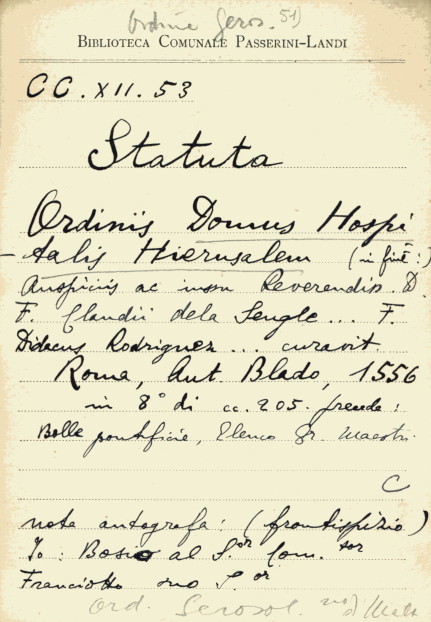 Ordine Geros. 51)
BIBLIOTECA COMUNALE PASSERINI-LANDI
CC. XII. 53
Statuta
Ordinis Domus Hospi
- talis Hierusalem (in fine:)
Auspiciis ac iussu Reverendis. D.
F. Claudii dela Sengle... F.
Didacus Rodriguez... curavit.
Roma, Ant. Blado, 1556
in 8° di cc. 205. precede:
Bolle pontificie, Elenco Gr. Maestri.
C
nota autografa: (frontispizio)
Jo: Bosio al S.or Com.tor
Franciotto suo S.or
Ord. Gerosol. di Malta